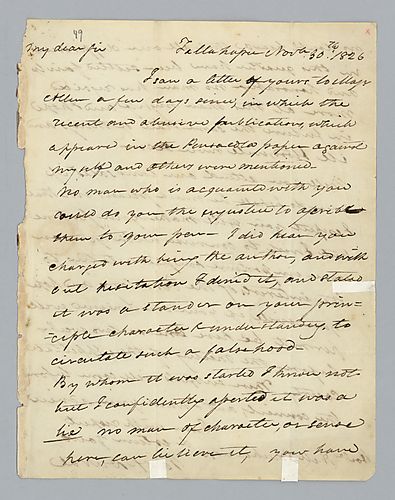 49
My dear Sir Tallahassee Novr. 30th. 1826
I saw a letter of yours to Majr
Allen a few days since, in which the
recent and abusive publications, which
appeared in the Pensacola paper against
myself and others were mentioned—
No man who is acquainted with you
could do you the injustice to ascribe
them to your pen— I did hear you
charged with being the author, and with
out hesitation I denied it, and stated
it was a slander on your prin-
-ciple character & understanding to
circulate such a falsehood—
By whom it was started I know not
but I confidently aserted it was a
lie no man of character or sense
here, can believe it, you have